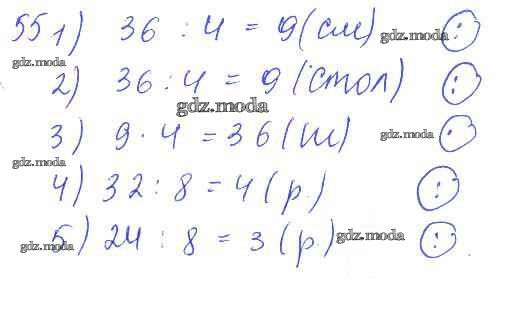 55 1) 36 : 4 = 9 (см) gdz.moda :
gdz.moda
2) 36 : 4 = 9 (стол) :
gdz.moda
3) 9 · 4 = 36 (ш) gdz.moda ·
gdz.moda
4) 32 : 8 = 4 (р.) :
5) 24 : 8 = 3 (р.) gdz.moda :
gdz.moda